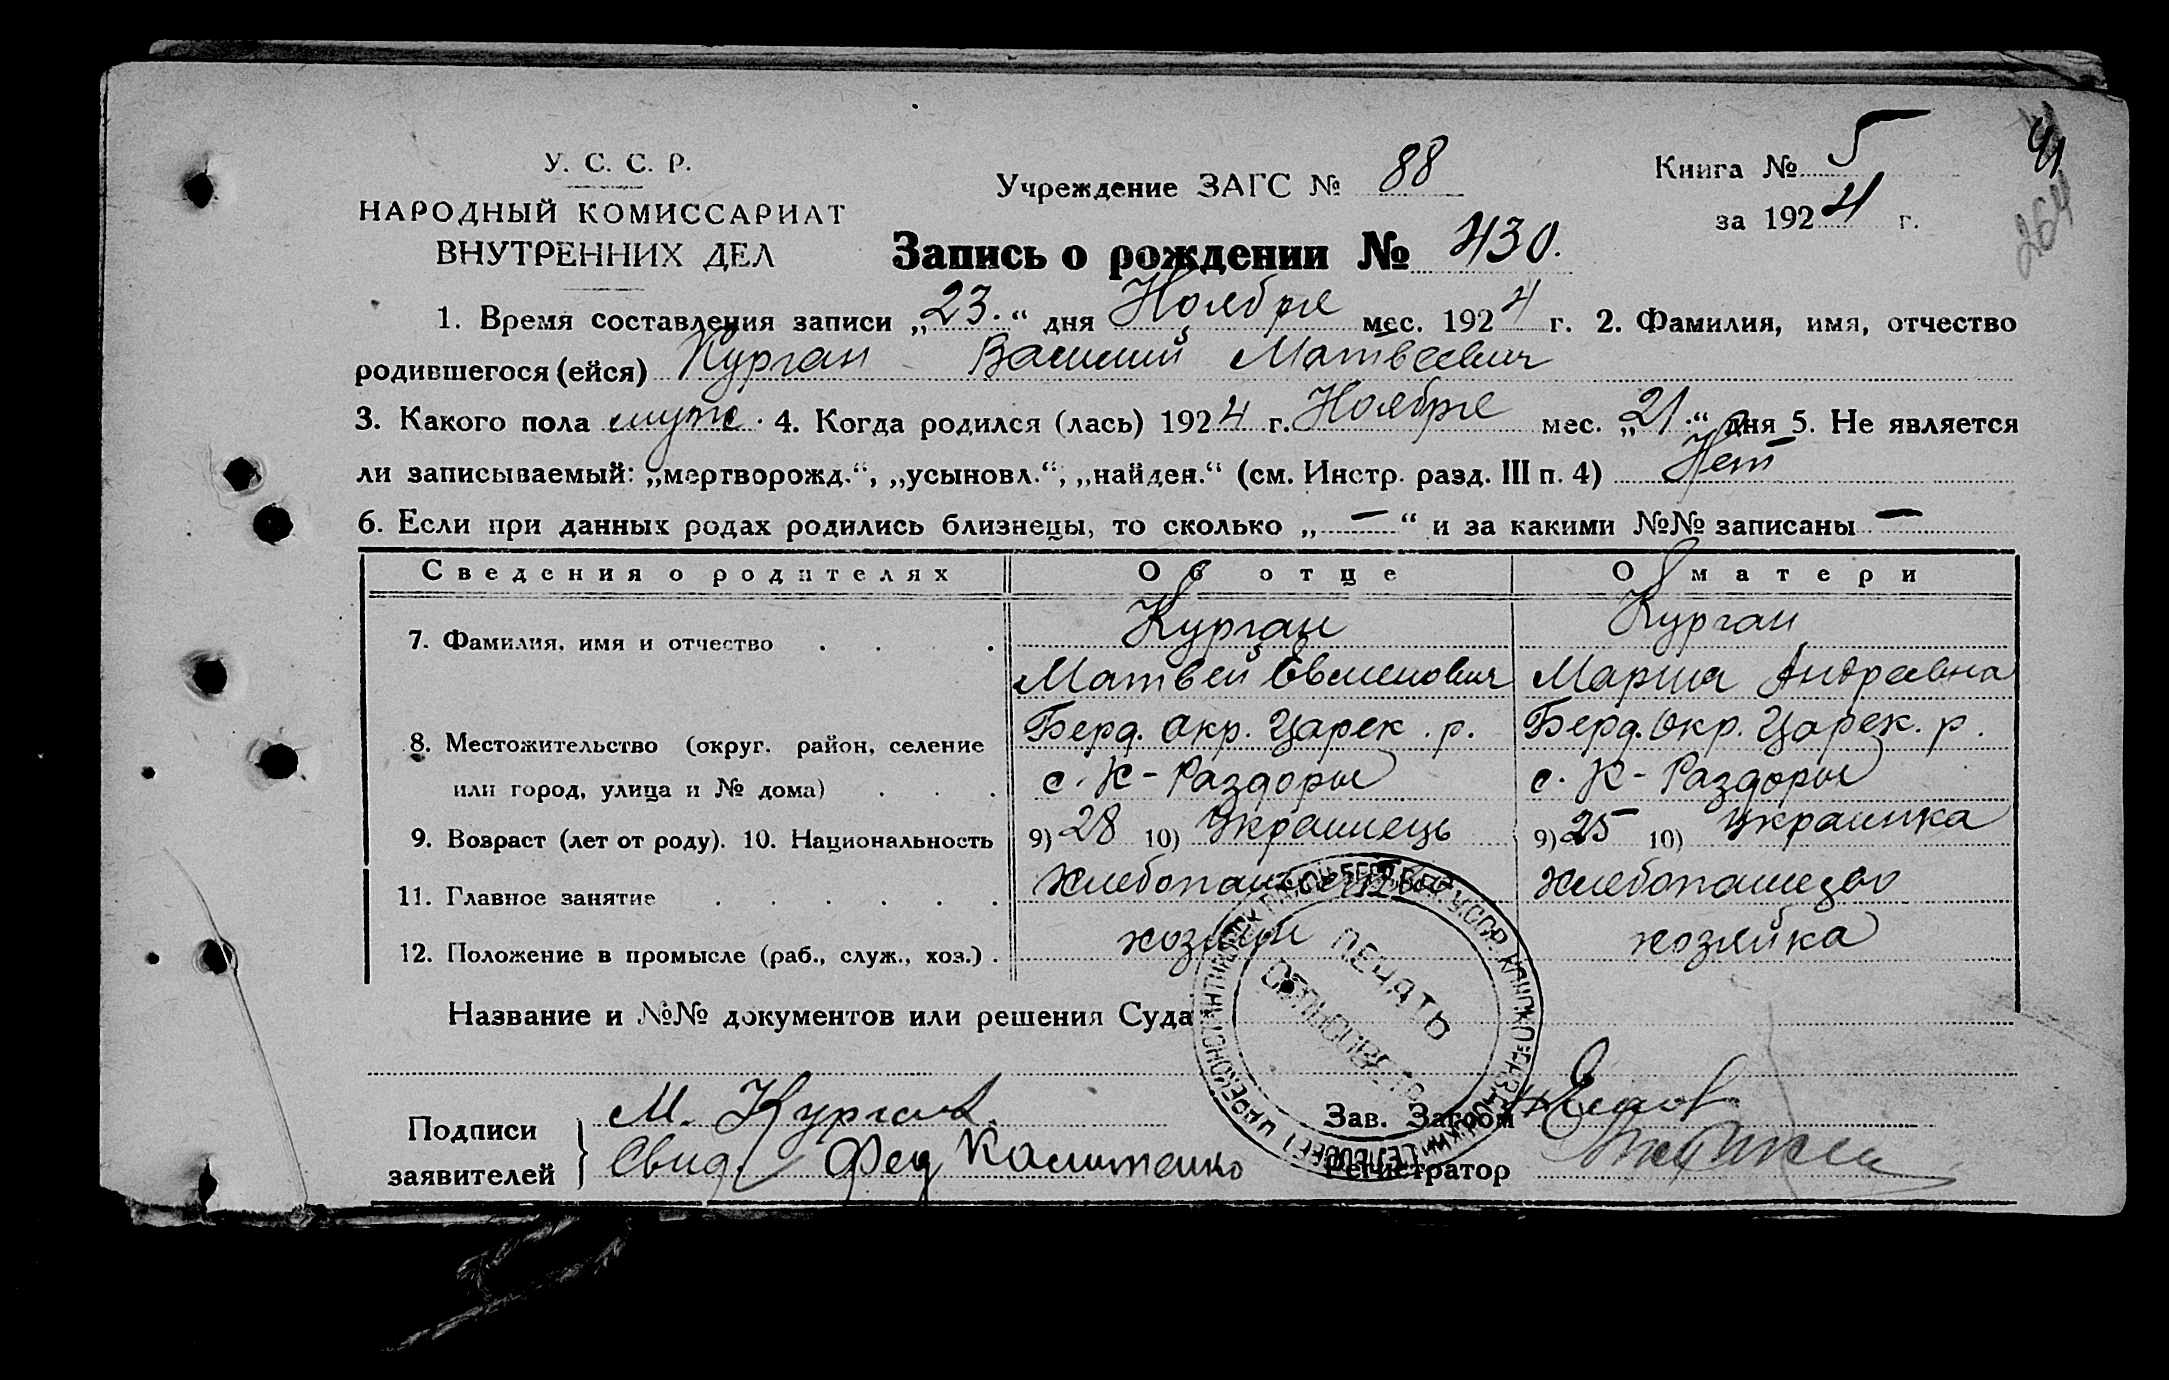 У. С. С. Р.
НАРОДНЫЙ КОМИССАРИАТ
ВНУТРЕННИХ ДЕЛ
Учреждение ЗАГС № 88
Книга № 5
за 1924 г.
41
264
Запись о рождении № 430.
1. Время составления записи „23.“ дня Ноября мес. 1924 г. 2. Фамилия, имя, отчество
родившегося (ейся) Курган Василий Матвеевич
3. Какого пола муж. 4. Когда родился (лась) 1924 г. Ноября мес. „21.“ дня 5. Не является
ли записываемый: „мертворожд.“, „усыновл.“, „найден.“ (см. Инстр. разд. III п. 4) Нет
6. Если при данных родах родились близнецы, то сколько „ — “ и за какими №№ записаны —
Сведения о родителях Об отце О матери
7. Фамилия, имя и отчество . . . Курган Курган
Матвей Евменович Мария Андреевна
8. Местожительство (округ. район, селение Берд. Окр. Царек. р. Берд. Окр. Царек. р.
или город, улица и № дома) . . . с. К-Раздоры с. К-Раздоры
9. Возраст (лет от роду). 10. Национальность 9) 28 10) Украинець 9) 25 10) Украинка
11. Главное занятие . . . . . . Хлебопашество Хлебопашество
12. Положение в промысле (раб., служ., хоз.) . хозяин хозяйка
Название и №№ документов или решения Суда
ПЕЧАТЬ
СЕЛЬСОВЕТА
Подписи
заявителей
М. Курган.
Свид. Фед Калитенко
Зав. Загсом
Регистратор